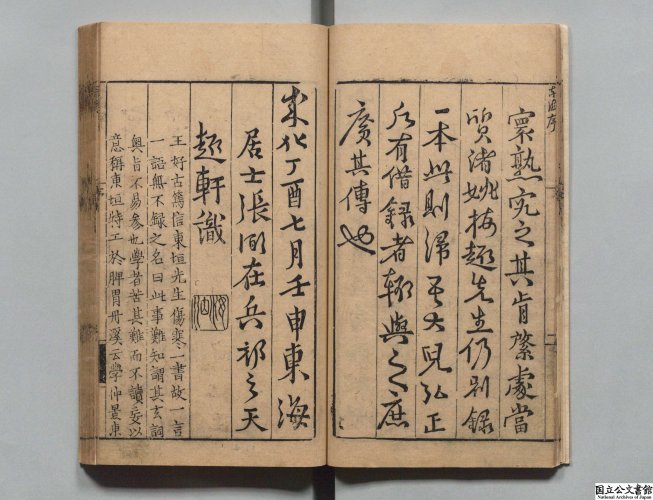 寰熟究之其肯綮處當
質渚姚梅趣先生仍别録
一本此則歸吾大兒弘正
后有借録者輙與之庶
廣其傳也
成化丁酉七月壬申東海
居士張弼在兵部之天
趣軒識
王好古篤信東垣先生傷寒一書故一言
一語無不録之名曰此事難知謂其玄詞
奥旨不易参也學者苦其難而不讀妄以
意稱東垣特工於脾胃丹溪云學仲景東
国立公文書館
National Archives of Japan